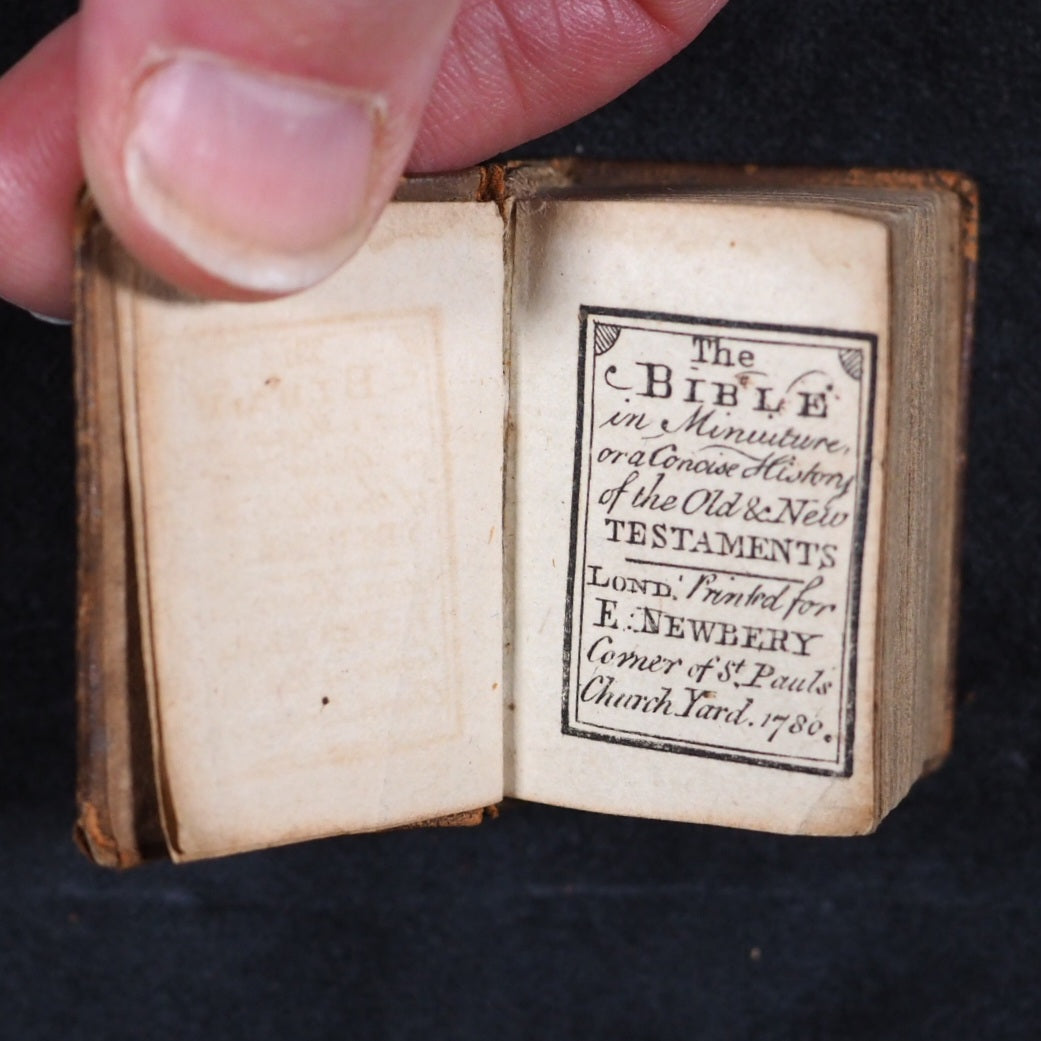 The
BIBLE
in Miniuture,
or a Concise History
of the Old & New
TESTAMENTS
LOND. Printed for
E: NEWBERY
Corner of St. Pauls
Church Yard. 1780.